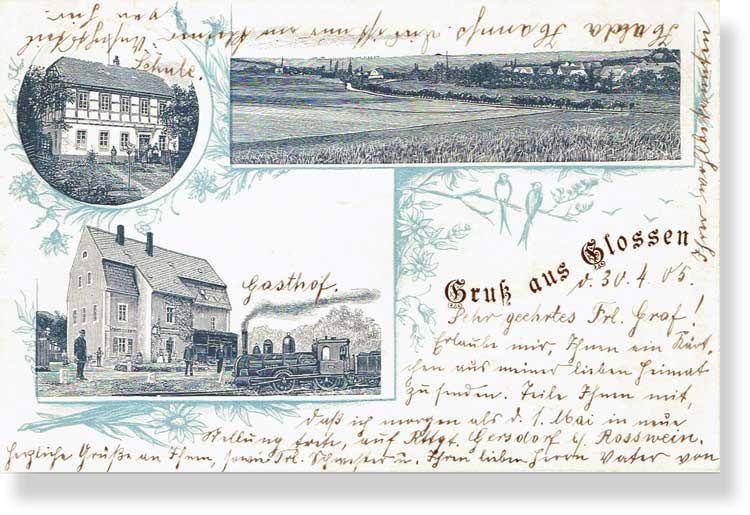 Schule.
Gasthof.
Gruß aus Glossen
d. 30. 4. 05.
Sehr geehrtes Frl. Graf!
Erlaube mir, Ihnen ein Kärt-
chen aus meiner lieben Heimat
zu senden. Teile Ihnen mit,
daß ich morgen als d. 1. Mai in neue
Stellung trete, auf Rttgt. Gersdorf b/ Rosswein.
Herzliche Grüße an Ihnen, sowie Frl. Schwester u. Ihren lieben Herrn Vater von